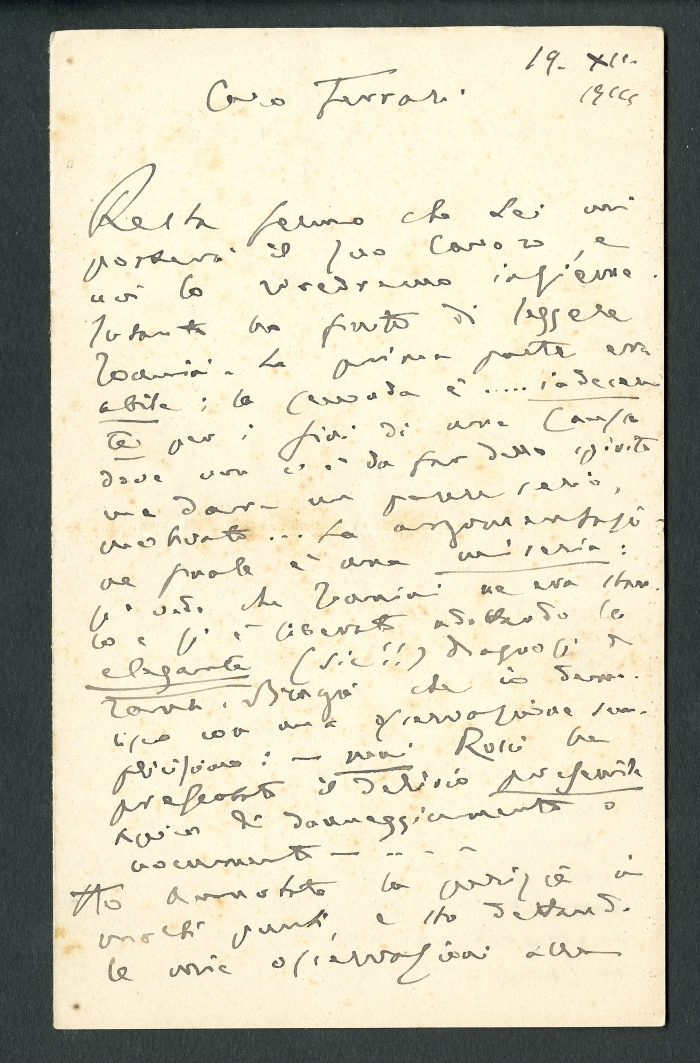 19. XII.
Caro Ferrari.
Resta fermo che Lei mi
porterà il suo lavoro, e
noi lo vedremo insieme.
Intanto ho finito di leggere
Tamini. La prima parte era
abile; la seconda è ..... indecen
te per i fini di una causa
dove non c'è da far dello spirito
ma dare un parere serio,
motivato... La argomentazio-
ne finale è una miseria:
si vede che Tamini ne era stan-
co e si è liberato adottando la
elegante (sic!!) diagnosi di
che io demo-
lisco con una osservazione sem-
plicissima: — mai Rosci ha
presentato il delirio presenile
di danneggiamento o
nocumento —
Ho annotato la perizia in
molti punti, e sto dettando
le mie osservazioni alla